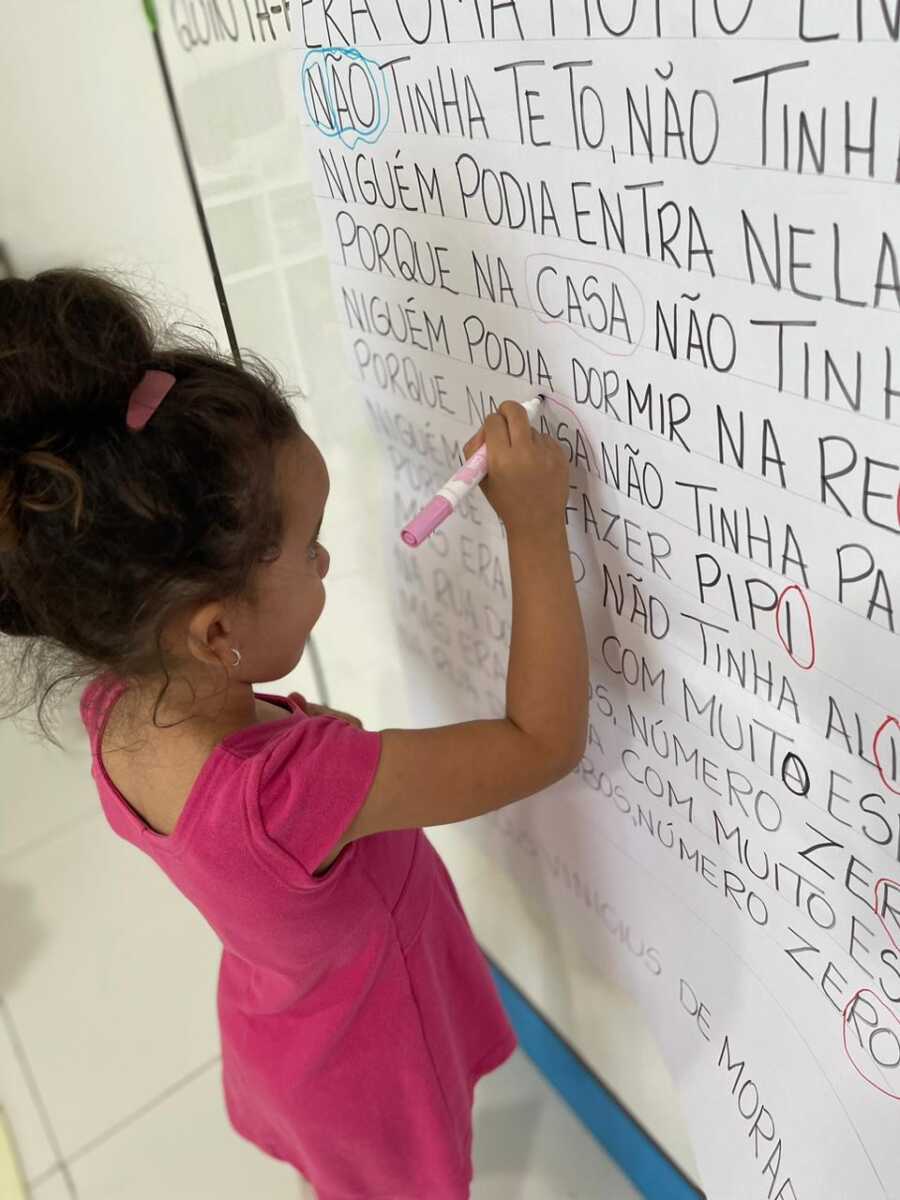 QUINTA-F
ERA UMA MUITO EN
NÃO TINHA TETO, NÃO TINHA
NIGUÉM PODIA ENTRA NELA
PORQUE NA CASA NÃO TINH
NIGUÉM PODIA DORMIR NA RE
PORQUE NA CASA NÃO TINHA PA
NIGUÉM FAZER PIPI
NÃO TINHA ALI
MAS ERA COM MUITO ES
NA RUA DOS NÚMERO ZERO
MAS ERA COM MUITO ES
NÚMERO ZERO
VINICIUS DE MORAE